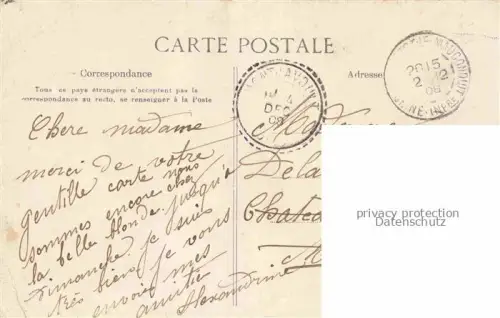 CARTE POSTALE
Correspondance
Tous les pays étrangers n'acceptent pas la
correspondance au recto, se renseigner à la Poste
Adresse
DEC
Chere madame
merci de votre
gentille carte nous
sommes encore chez
la belle blonde jusqu'a
Dimanche je suis
très bien je vous
envoie mes
amitié
Alexandrine
Dela
Chatea
privacy protection
Datenschutz